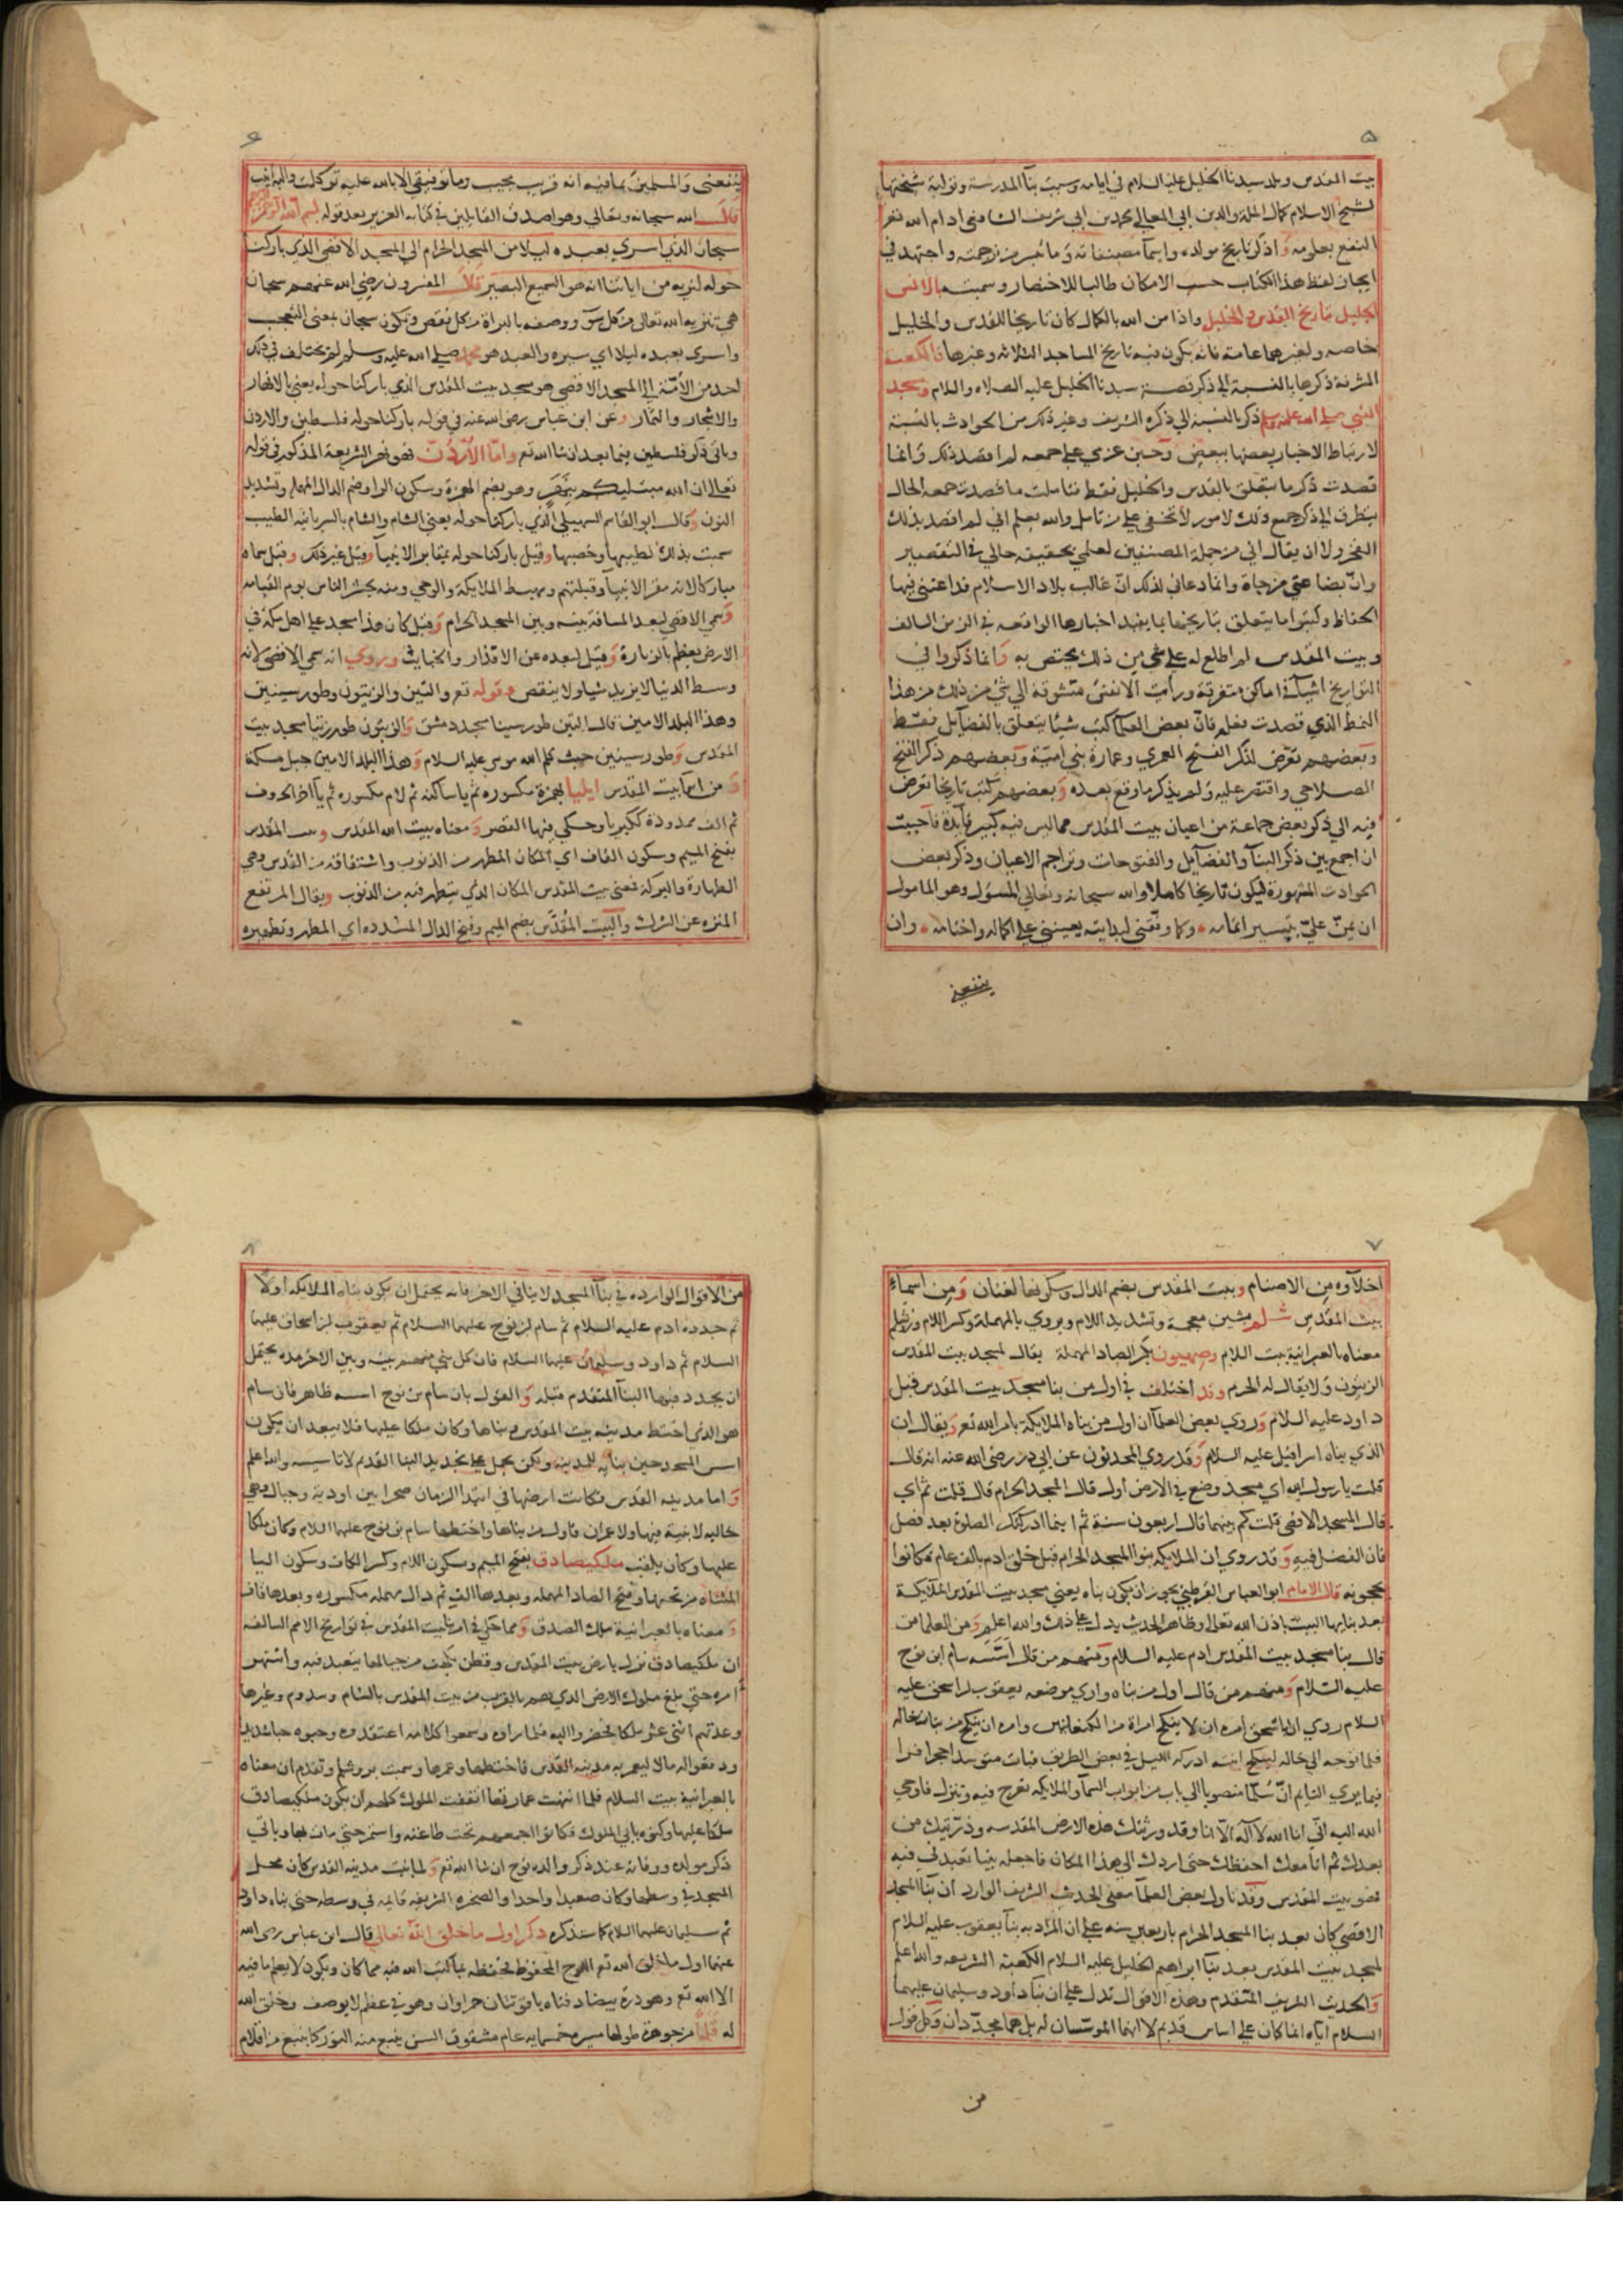 ٥
بيت المقدس وبلد سيدنا الخليل عليه السلام في ايامه وسبب بنآ المدرسة وتولية مشيختها
لشيخ الاسلام كمال الملة والدين ابي المعالي محمد بن ابي شريف الشافعي ادام الله تعر
النفع بعلومه واذكر تاريخ مولده واسمآ مصنفاته وما تيسر من ترجمته واجتهد في
ايجاز لفظ هذا الكتاب حسب الامكان طالبا للاختصار وسميته بالانس
الجليل بتاريخ القدس والخليل واذا من الله بالكمال كان تاريخا للقدس والخليل
خاصه ولغيرهما عامة فانه يكون فيه تاريخ المساجد الثلاثه وغيرها فالكعبه
المشرفة ذكرها بالنسبة الي ذكر قصة سيدنا الخليل عليه الصلاه والسلام ومسجد
النبي صلي الله عليه وسلم ذكر بالنسبة الي ذكره الشريف وغير ذلك من الحوادث بالنسبة
لارتباط الاخبار بعضها ببعض وحين عزمي علي جمعه لم اقصد ذلك وانما
قصدت ذكر ما يتعلق بالقدس والخليل فقط فتاملت ما قصدت جمعه الحال
يتطرق الي ذكر جميع ذلك لامور لا تخفي علي من تامل والله يعلم اني لم اقصد بذلك
الفخر ولا ان يقال اني من جملة المصنفين لعلمي بحقيقة حالي في التقصير
وان بضاعتي مزجاة وانما دعاني لذلك ان غالب بلاد الاسلام قد اعتني فيها
الحفاظ وكتبوا ما يتعلق بتاريخها بما يفيد اخبارها الواقعه في الزمن السالف
وبيت المقدس لم اطلع له علي شي من ذلك يختص به وانما ذكروا في
التواريخ اشيآ في اماكن متفرقة ورايت الانفس متشوقة الي شي من ذلك من هذا
النمط الذي قصدت فعله فان بعض العلمآ كتب شيئا يتعلق بالفضآيل فقط
وبعضهم تعرض لذكر الفتح العمري وعمارة بني امية وبعضهم ذكر الفتح
الصلاحي واقتصر عليه ولم يذكر ما وقع بعده وبعضهم كتب تاريخا تعرض
فيه الي ذكر بعض جماعة من اعيان بيت المقدس مما ليس فيه كبير فآيدة فاحببت
ان اجمع بين ذكر البنآ والفضآيل والفتوحات وتراجم الاعيان وذكر بعض
الحوادث المشهورة ليكون تاريخا كاملا والله سبحانه وتعالي المسؤل وهو المامول
ان يمن علي بتيسير اتمامه وكما وفقني لبدايته يعينني علي اكماله واختامه وان
ينفعني
٦
ينفعني والمسلمين بما فيه انه قريب مجيب وما توفيقي الا بالله عليه توكلت واليه انيب
قال الله سبحانه وتعالي وهو اصدق القايلين في كتابه العزيز بعد قوله بسم الله الرحمن الرحيم
سبحان الذي اسري بعبده ليلا من المسجد الحرام الي المسجد الاقصي الذي باركنا
حوله لنريه من اياتنا انه هو السميع البصير قال المفسرون رضي الله عنهم سبحان
هي تنزيه الله تعالي من كل سو ووصفه بالبراة من كل نقص وتكون سبحان بمعني التعجب
واسري بعبده ليلا اي سيره والعبد هو محمد صلي الله عليه وسلم لم يختلف في ذلك
احد من الامة الي المسجد الاقصي هو مسجد بيت المقدس الذي باركنا حوله يعني بالانهار
والاشجار والثمار وعن ابن عباس رضي الله عنه في قوله باركنا حوله فلسطين والاردن
وياتي ذكر فلسطين فيما بعد ان شا الله تعر واما الاردن فهو نهر الشريعة المذكور في قوله
تعالي ان الله مبتليكم بنهر وهو بضم الهمزة وسكون الرا وضم الدال المهملة وتشديد
النون وقال ابو القاسم السهيلي الذي باركنا حوله يعني الشام والشام بالسريانيه الطيب
سميت بذلك لطيبها وخصبها وقيل باركنا حوله بمقابر الانبيآ وقيل غير ذلك وقيل سماه
مباركا لانه مقر الانبيآ وقبلتهم ومهبط الملايكة والوحي ومنه يحشر الناس يوم القيامه
وسمي الاقصي لبعد المسافة بينه وبين المسجد الحرام وقيل كان هذا مسجد علي اهل مكه في
الارض يعظم بالزيارة وقيل لبعده عن الاقذار والخبايث ويروي انه سمي الاقصي لانه
وسط الدنيا لا يزيد شيا ولا ينقص وقوله تعر والتين والزيتون وطور سينين
وهذا البلد الامين قال التين طور سينا مسجد دمشق والزيتون طور زيتا مسجد بيت
المقدس وطور سينين حيث كلم الله موسي عليه السلام وهذا البلد الامين جبل مكة
ومن اسمآ بيت المقدس ايليا بهمزة مكسوره ثم يا ساكنه ثم لام مكسوره ثم يآ اخر الحروف
ثم الف ممدودة ككبريا وحكي فيها القصر ومعناه بيت الله المقدس وبيت المقدس
بفتح الميم وسكون القاف اي المكان المطهر من الذنوب واشتقاقه من القدس وهي
الطهارة والبركة فمعني بيت المقدس المكان الذي يتطهر فيه من الذنوب ويقال المرتفع
المنزه عن الشرك والبيت المقدس بضم الميم وفتح الدال المشدده اي المطهر وتطهيره
٧
اخلاوه من الاصنام وبيت المقدس بضم الدال وسكونها لغتان ومن اسمآء
بيت المقدس شلم بشين معجمة وتشديد اللام ويروي بالمهملة وكسر اللام وروشلم
معناه بالعبرانية بيت السلام وصهيون بكسر الصاد المهملة يقال لمسجد بيت المقدس
الزيتون ولا يقال له الحرم وقد اختلف في اول من بنا مسجد بيت المقدس فقيل
داود عليه السلام وروي بعض العلمآ ان اول من بناه الملايكة بامر الله تعر ويقال ان
الذي بناه اسرافيل عليه السلام وقد روي المحدثون عن ابي ذر رضي الله عنه انه قال
قلت يا رسول الله اي مسجد وضع في الارض اول قال المسجد الحرام قال قلت ثم اي
قال المسجد الاقصي قلت كم بينهما قال اربعون سنة ثم اينما ادركتك الصلوة بعد فصل
فان الفضل فيه وقد روي ان الملايكه بنوا المسجد الحرام قبل خلق ادم بالف عام فكانوا
يحجونه قال الامام ابو العباس القرطبي يجوز ان يكون بناه يعني مسجد بيت المقدس الملايكة
بعد بنايها البيت باذن الله تعالي وظاهر الحديث يدل علي ذلك والله اعلم ومن العلما من
قال بنا مسجد بيت المقدس ادم عليه السلام ومنهم من قال اسسه سام ابن نوح
عليه السلام ومنهم من قال اول من بناه واري موضعه يعقوب بن اسحق عليه
السلام روي ان اباه اسحق امره ان لا ينكح امراة من الكنعانيين وامره ان ينكح من بنات خاله
فلما توجه الي خاله لينكح ابنته ادركه الليل في بعض الطريق فبات متوسدا حجرا فراي
فيما يري النايم ان سلما منصوبا الي باب من ابواب السمآ والملايكه تعرج فيه وتنزل فاوحي
الله اليه اني انا الله لا اله الا انا وقد ورثتك هذه الارض المقدسه وذريتك من
بعدك ثم انا معك احفظك حتي اردك الي هذا المكان فاجعله بيتا تعبدني فيه
فهو بيت المقدس وقد تاول بعض العلمآ معني الحديث الشريف الوارد ان بنآ المسجد
الاقصي كان بعد بنا المسجد الحرام باربعين سنه علي ان المراد به بنآ يعقوب عليه السلام
لمسجد بيت المقدس بعد بنآ ابراهيم الخليل عليه السلام الكعبة الشريفه والله اعلم
والحديث الشريف المتقدم وهذه الاقوال تدل علي ان بنآ داود وسليمان عليهما
السلام اياه انما كان علي اساس قديم لا انهما الموسسان له بل هما مجددان وكل قول
من
٨
من الاقوال الوارده في بنآ المسجد لا ينافي الاخر فانه يحتمل ان يكون بناه الملايكه اولا
ثم جدده ادم عليه السلام ثم سام بن نوح عليهما السلام ثم يعقوب بن اسحاق عليهما
السلام ثم داود وسليمان عليهما السلام فان كل نبي منهم بينه وبين الاخر مده يحتمل
ان يجدد فيها البنآ المتقدم قبله والقول بان سام بن نوح اسسه ظاهر فان سام
هو الذي اختط مدينه بيت المقدس وبناها وكان ملكا عليها فلا يبعد ان يكون
اسس المسجد حين بنايه للمدينه ويكن يحمل علي تجديد البنا القديم لا تاسيسه والله اعلم
واما مدينه القدس فكانت ارضها في ابتدآ الزمان صحرا بين اودية وجبال وهي
خاليه لا بنية فيها ولا عمران فاول من بناها واختطها سام بن نوح عليهما السلام وكان ملكا
عليها وكان يلقب ملكيصادق بفتح الميم وسكون اللام وكسر الكاف وسكون اليا
المثناه من تحتها وفتح الصاد المهمله وبعدها الف ثم دال مهمله مكسوره وبعدها قاف
ومعناه بالعبرانية ملك الصدق ومما حكي في امر بنا بيت المقدس في تواريخ الامم السالفه
ان ملكيصادق نزل بارض بيت المقدس وقطن بكهف من جبالها يتعبد فيه واشتهر
امره حتي بلغ ملوك الارض الذي هم بالقرب من بيت المقدس بالشام وسدوم وغيرها
وعدتهم اثني عشر ملكا فحضروا اليه فلما راوه وسمعوا كلامه اعتقدوه وحبوه حبا شديدا
ودفعوا له مالا ليعمر به مدينه القدس فاختطها وعمرها وسميت يروشلم وتقدم ان معناه
بالعبرانية بيت السلام فلما انتهت عمارتها اتفقت الملوك كلهم ان يكون ملكيصادق
ملكا عليها وكنوه بابي الملوك فكانوا اجمعهم تحت طاعته واستمر حتي مات بها وياتي
ذكر مولده ووفاته عند ذكر والده نوح ان شا الله تعر ولما بنيت مدينه القدس كان محل
المسجد في وسطها وكان صعيدا واحدا والصخره الشريفه قايمه في وسطه حتي بناه داود
ثم سليمان عليهما السلام كما سنذكره ذكر اول ما خلق الله تعالي قال ابن عباس رضي الله
عنهما اول ما خلق الله تعر اللوح المحفوظ فحفظه بما كتب الله فيه مما كان ويكون لا يعلم ما فيه
الا الله تعر وهو درة بيضا دفتاه ياقوتتان حمراوان وهو في عظم لا يوصف وخلق الله
له قلما من جوهرة طولها مسيره خمسمايه عام مشقوق السن ينبع منه النور كما ينبع من اقلام